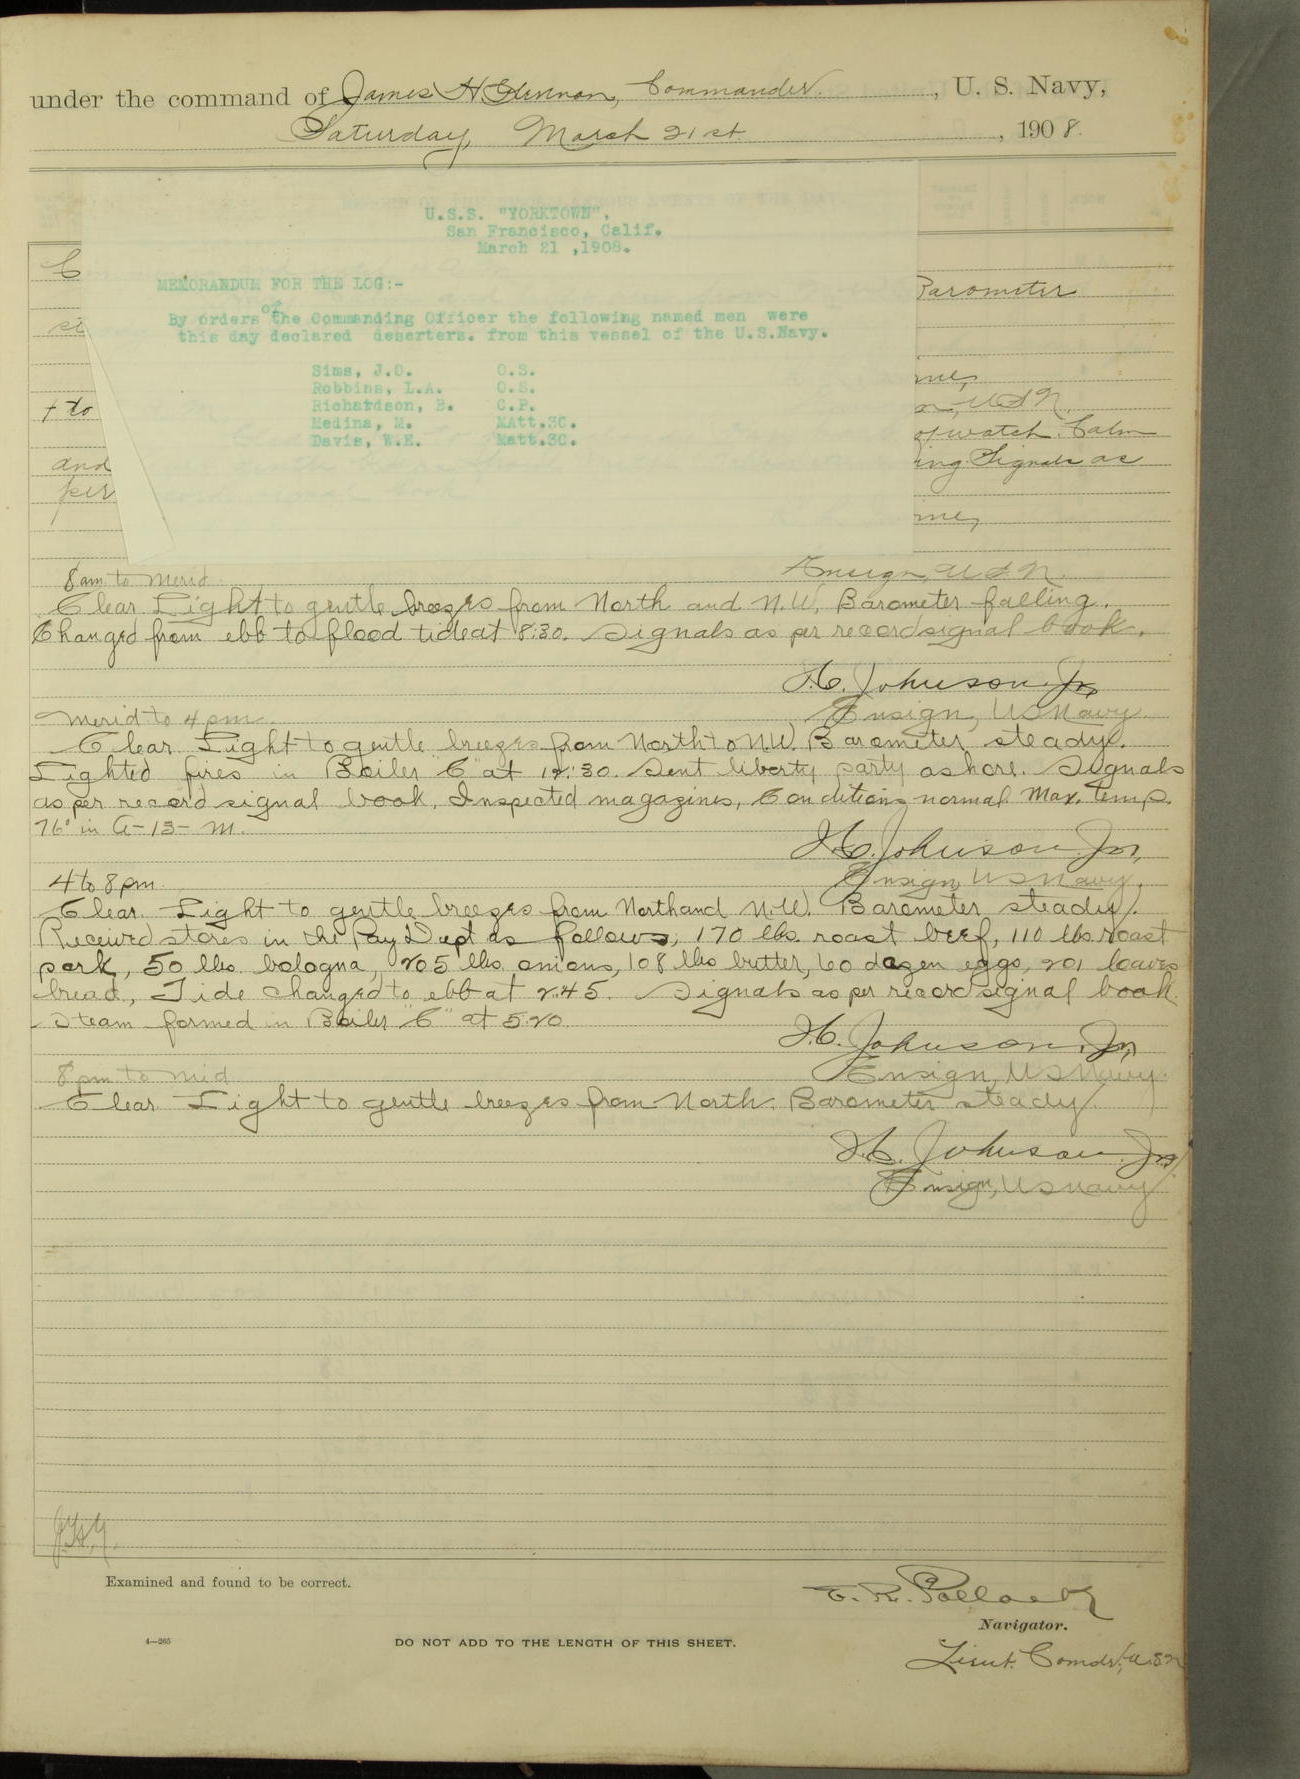 under the command of James H Glennon, Commander, U. S. Navy,
Saturday, March 21st, 1908.
U.S.S. "YORKTOWN",
San Francisco, Calif.
March 21 ,1908.
MEMORANDUM FOR THE LOG:-
By orders of the Commanding Officer the following named men were
this day declared deserters. from this vessel of the U.S.Navy.
Sims, J.O. O.S.
Robbins, L.A. O.S.
Richardson, B. C.P.
Medina, M. MAtt.3C.
Davis, W.E. Matt.3C.
C
Barometer
st
me,
+ to
n, U S N.
of watch. Calm
and
ing Signals as
per
me,
Ensign, U S N.
8 am to Merid
Clear. Light to gentle breezes from North and N.W. Barometer falling.
Changed from ebb to flood tide at 8:30. Signals as per record signal book.
H.C. Johnson Jr,
Ensign, US Navy
Merid to 4 pm.
Clear. Light to gentle breezes from North to N.W. Barometer steady.
Lighted fires in Boiler "C" at 12:30. Sent liberty party ashore. Signals
as per record signal book. Inspected magazines, Conditions normal. Max. temp.
76° in A-13-M.
H.C. Johnson Jr,
Ensign, US Navy.
4 to 8 pm.
Clear. Light to gentle breezes from North and N.W. Barometer steady.
Received stores in the Pay Dept as follows; 170 lbs. roast beef, 110 lbs roast
pork, 50 lbs. bologna, 205 lbs. onions, 108 lbs butter, 60 dozen eggs, 201 loaves
bread, Tide changed to ebb at 2:45. Signals as per record signal book.
Steam formed in Boiler "C" at 5:20.
H.C. Johnson, Jr,
Ensign, US Navy.
8 pm to Mid
Clear. Light to gentle breezes from North. Barometer steady.
H.C. Johnson, Jr,
Ensign, US Navy
J.H.G.
Examined and found to be correct.
E. R. Pollock
Navigator.
4—265
DO NOT ADD TO THE LENGTH OF THIS SHEET.
Lieut. Comdr, U.S.N